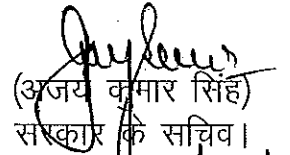 (अजय कुमार सिंह)
सरकार के सचिव।